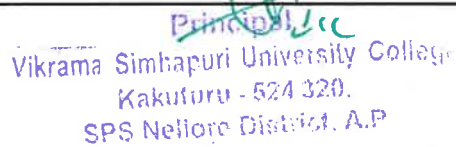 Principal, I/C
Vikrama Simhapuri University College
Kakuturu - 524 320.
SPS Nellore District, A.P